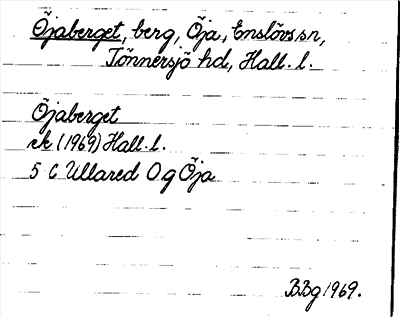 Öjaberget, berg, Öja, Enslövs sn,
Tönnersjö hd, Hall. l.
Öjaberget
rk (1969) Hall. l.
5 C Ullared O g Öja
BBg 1969.